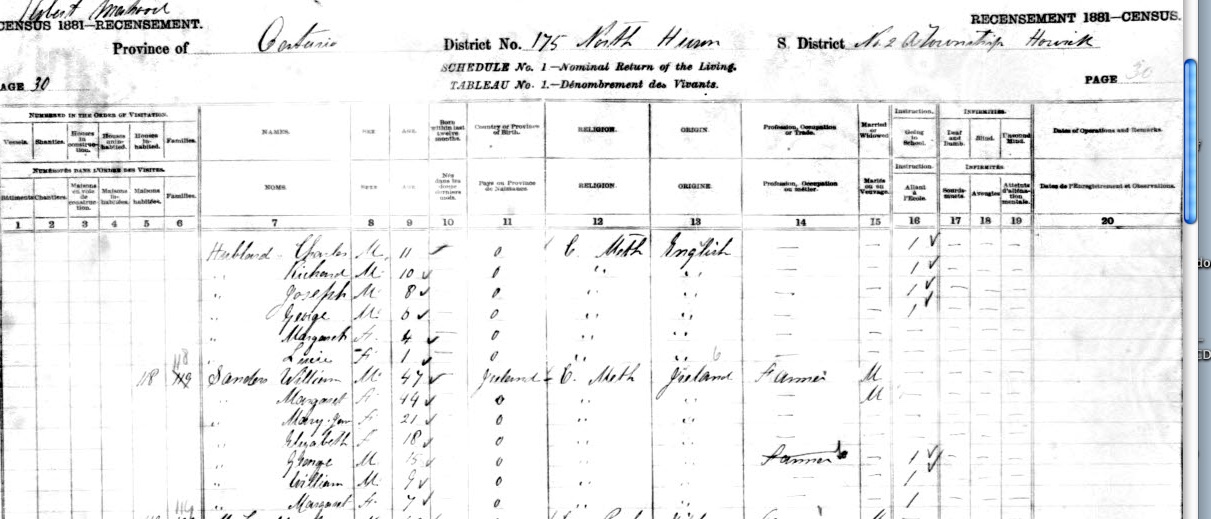 CENSUS 1881—RECENSEMENT.
RECENSEMENT 1881—CENSUS.
Province of Ontario District No. 175 North Huron S. District No. 2 A Township Howick
SCHEDULE No. 1—Nominal Return of the Living.
TABLEAU No. 1.—Dénombrement des Vivants.
AGE 30 PAGE 30
NUMBERED IN THE ORDER OF VISITATION.
Vessels. Shanties. Houses in construction. Houses uninhabited. Houses inhabited. Families. NAMES. SEX AGE. Born within last twelve months. Country or Province of Birth. RELIGION. ORIGIN. Profession, Occupation or Trade. Married or Widowed Instruction. Going to School. INFIRMITIES. Deaf and Dumb. Blind. Unsound Mind. Dates of Operations and Remarks.
NUMÉROTÉS DANS L'ORDRE DES VISITES.
Bâtiments Chantiers. Maisons en voie de construction. Maisons inhabitées. Maisons habitées. Familles. NOMS. SEXE AGE. Nés dans les douze derniers mois. Pays ou Province de Naissance RELIGION. ORIGINE. Profession, Occupation ou métier. Mariés ou en Veuvage. Instruction. Allant à l'École. INFIRMITÉS. Sourds-muets. Aveugles Atteints d'aliénation mentale. Dates de l'Enregistrement et Observations.
1 2 3 4 5 6 7 8 9 10 11 12 13 14 15 16 17 18 19 20
Hubbard Charles M. 11 — 0 C. Meth English — — 1 — — —
" Richard M. 10 — 0 " " — — 1 — — —
" Joseph M. 8 — 0 " " — — 1 — — —
" George M. 6 — 0 " " — — 1 — — —
" Margaret F. 4 — 0 " " — — — — — —
" F. 1 — 0 " " — — — — — —
118
118 119 Sanders William M. 47 Ireland C. Meth Ireland Farmer M — — — —
" Margaret F. 44 0 " " — M — — — —
" Mary Jane F. 21 0 " " — — — — — —
" Elizabeth F. 18 0 " " — — — — — —
" George M. 15 0 " " Farmer — 1 — — —
" William M. 9 0 " " — — 1 — — —
" Margaret F. 7 0 " " — — 1 — — —